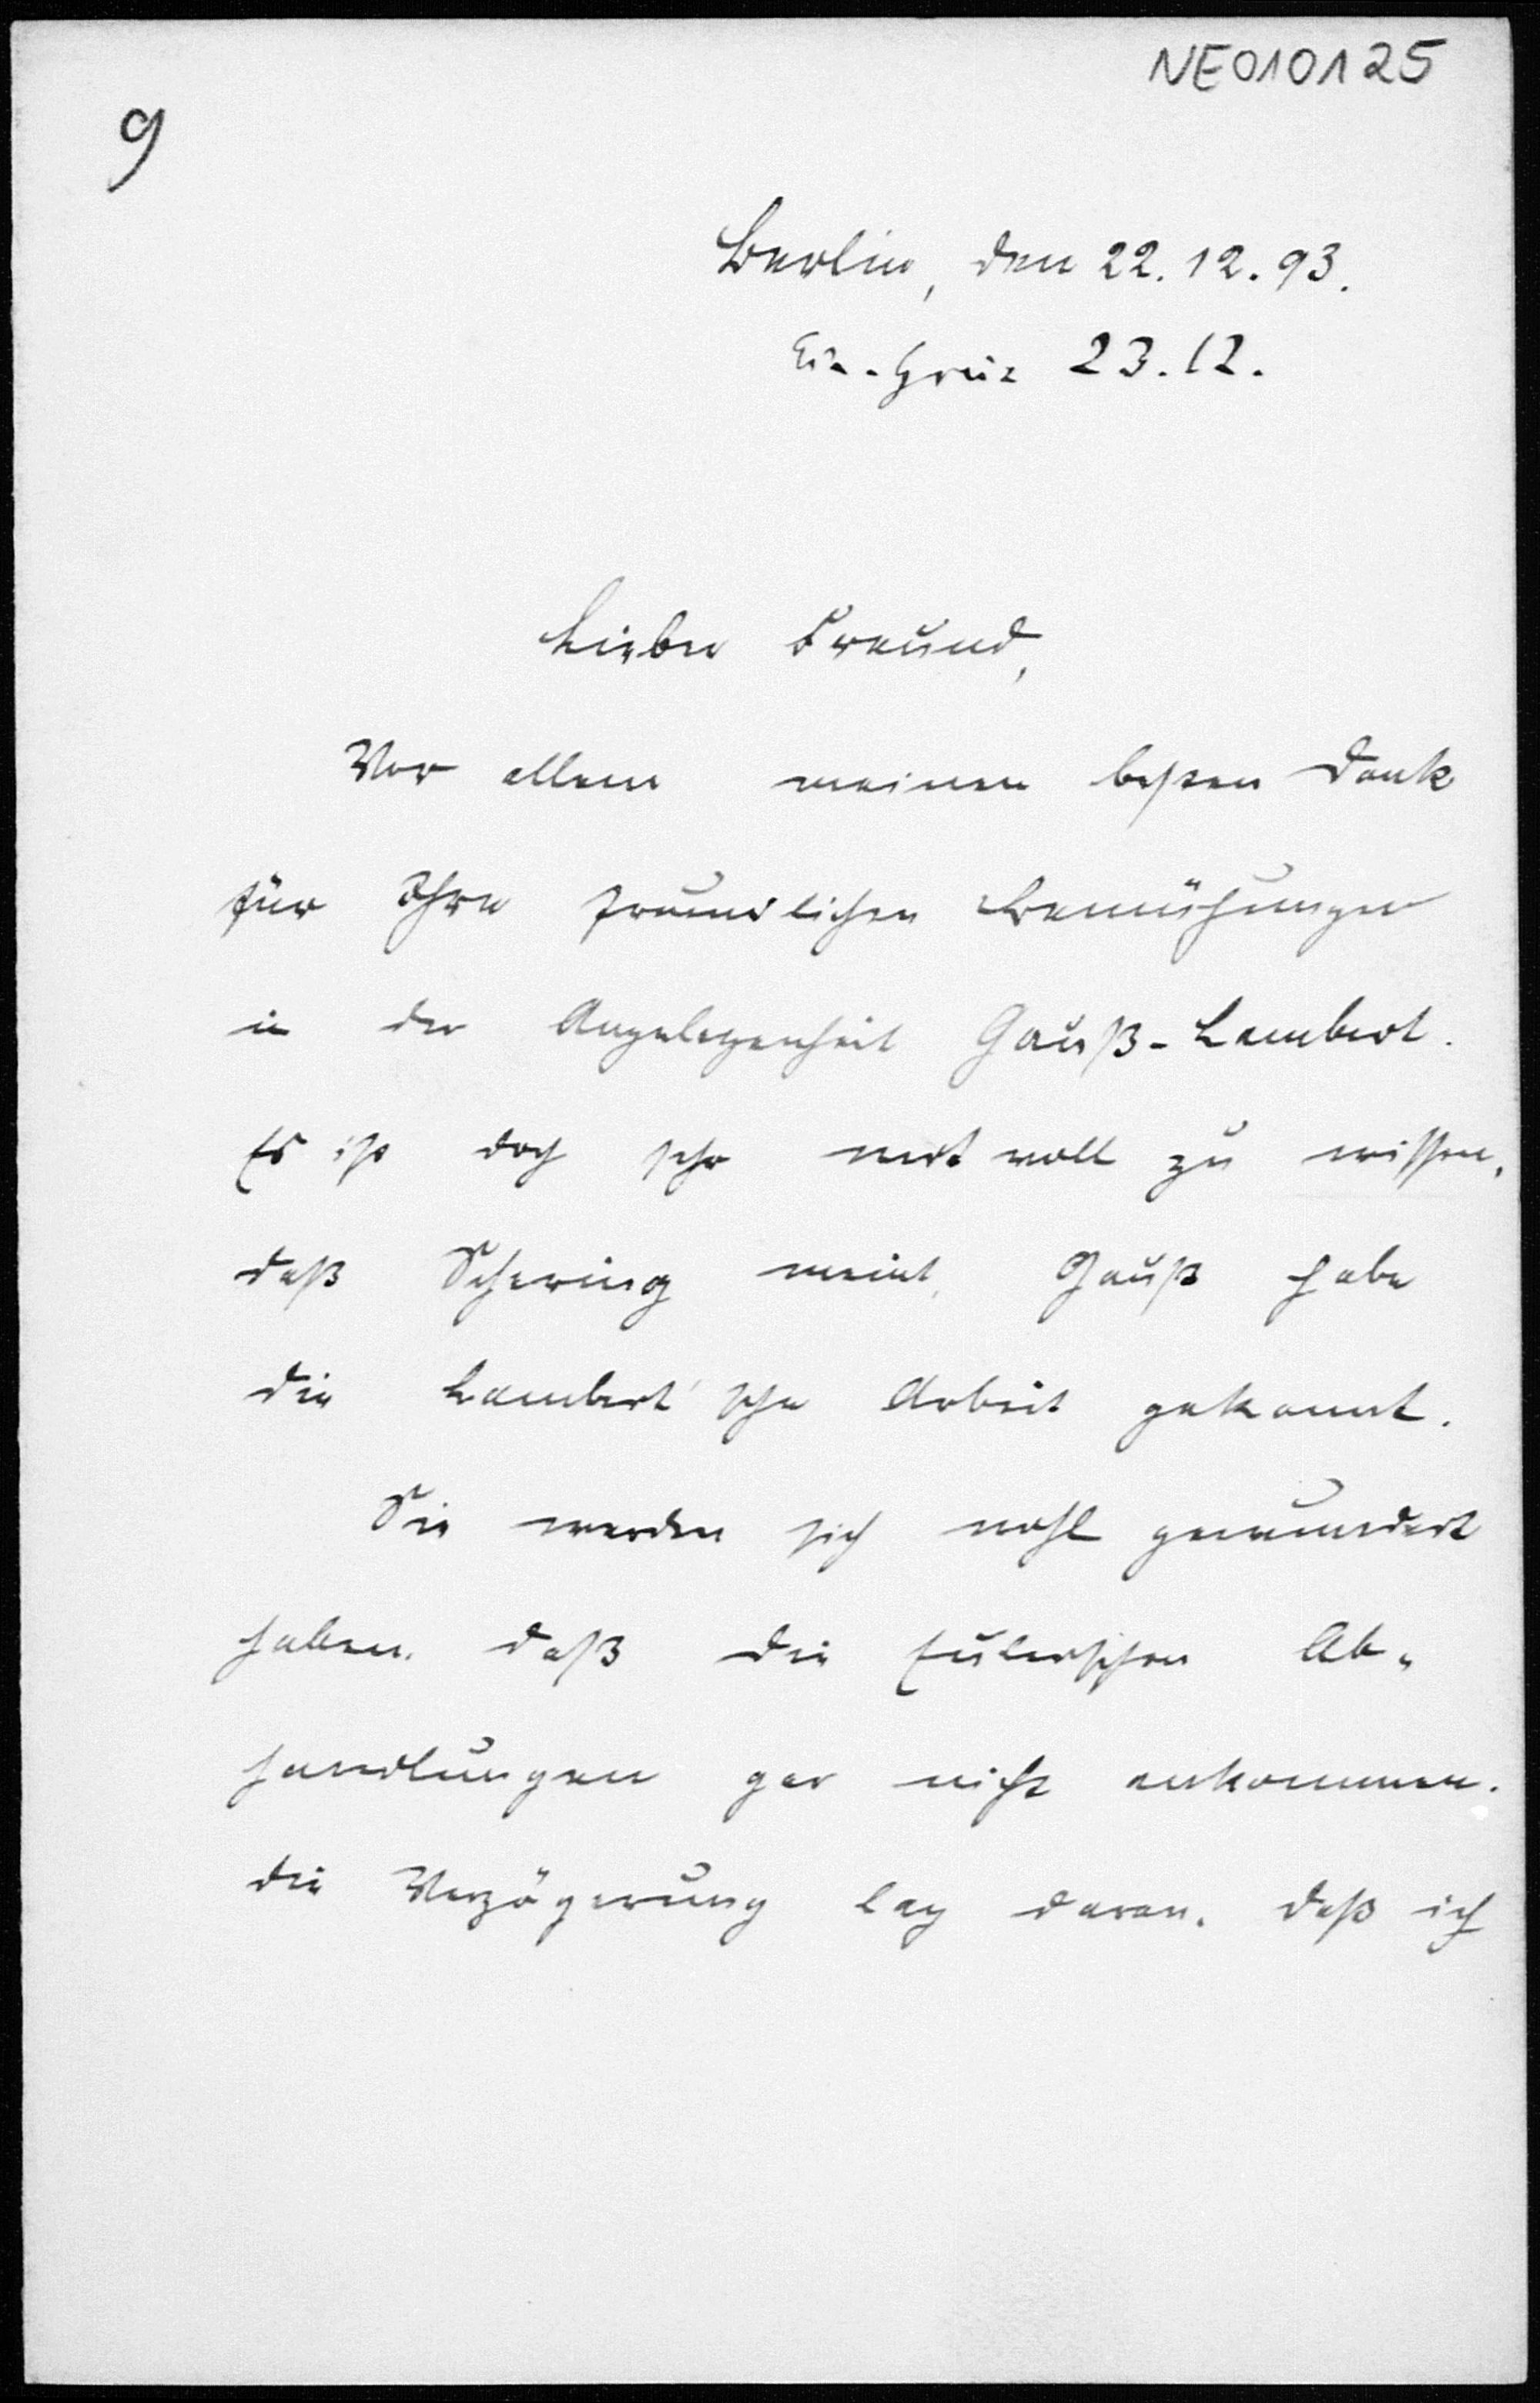 NE010125
9
Berlin, den 22.12.93.
Greiz 23.12.
Lieber Freund,
Vor allem meinen besten Dank
für Ihre freundlichen Bemühungen
in der Angelegenheit Gauß-Lambert.
Es ist doch sehr wertvoll zu wissen,
daß Schering meint, Gauß habe
die Lambert'sche Arbeit gekannt.
Sie werden sich wohl gewundert
haben, daß die Eulerschen Ab-
handlungen gar nicht ankommen.
Die Verzögerung lag daran, daß ich